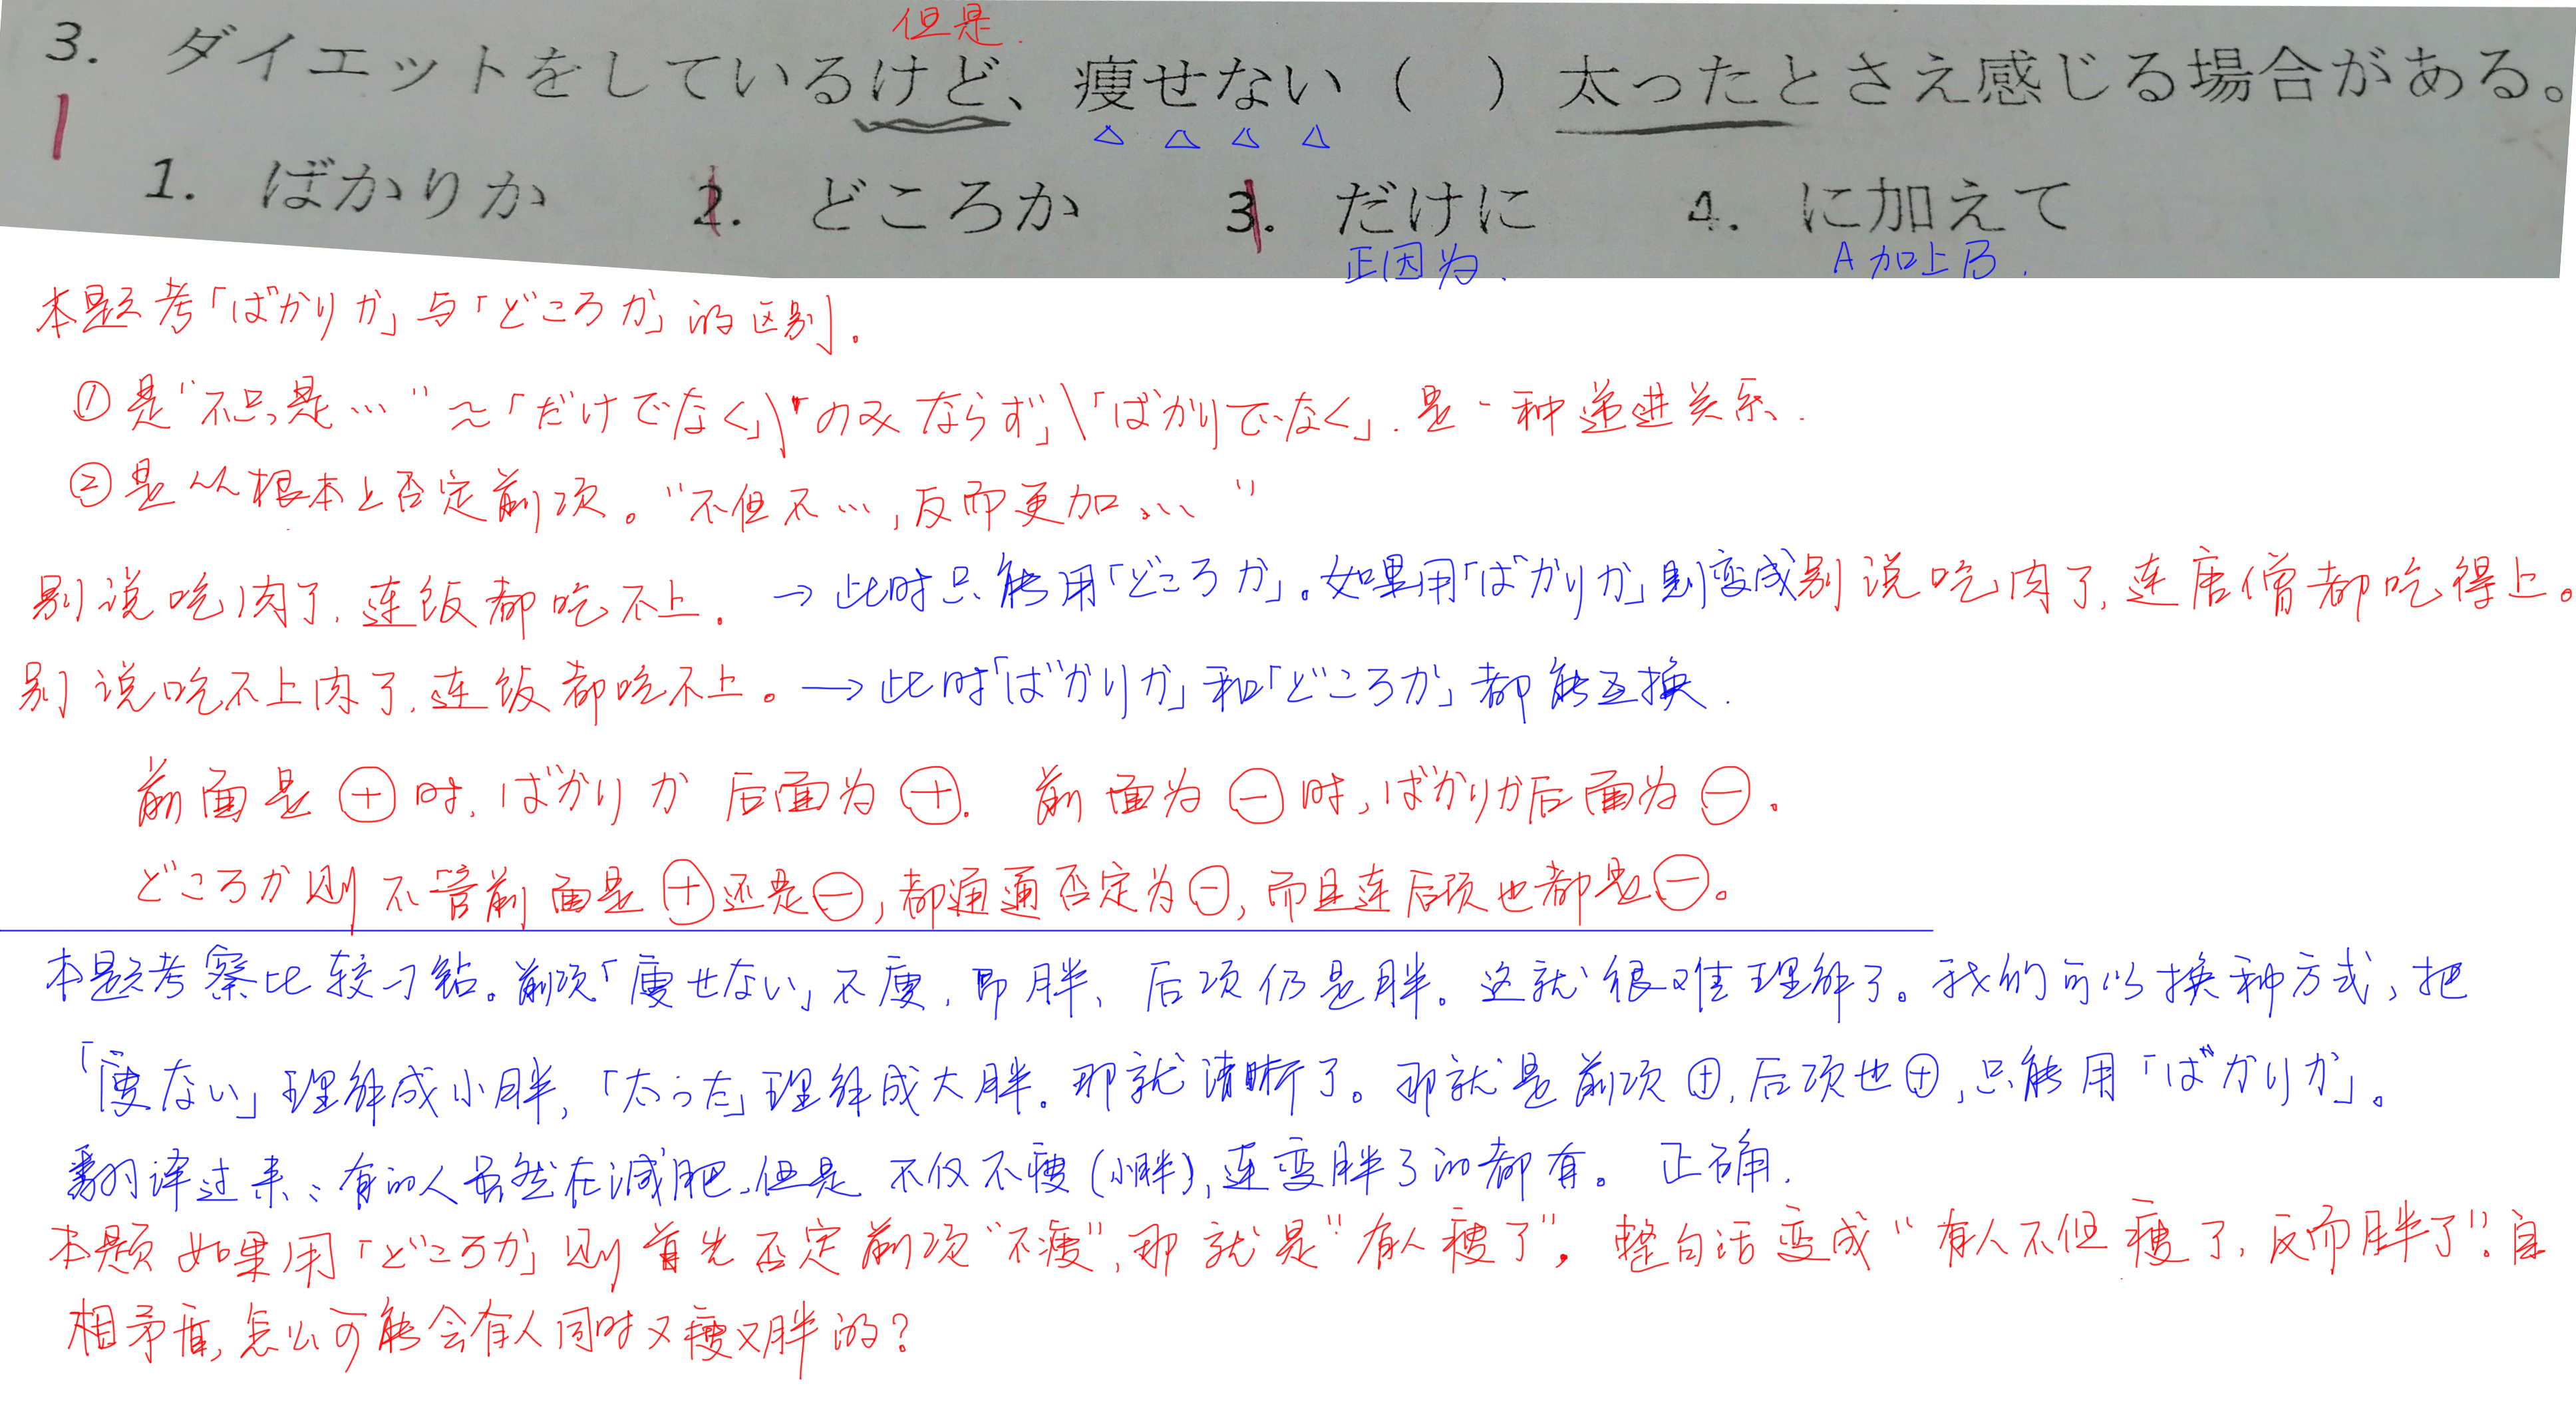 但是.
3. ダイエットをしているけど、痩せない（　）太ったとさえ感じる場合がある。
1
1. ばかりか　2. どころか　3. だけに　4. に加えて
正因为.　A加上B.
本题考「ばかりか」与「どころか」的区别.
①是"不只是…"～「だけでなく」\「のみならず」\「ばかりでなく」.是一种递进关系.
②是从根本上否定前项。"不但不…,反而更加…"
别说吃肉了,连饭都吃不上. →此时只能用「どころか」。如果用「ばかりか」则变成别说吃肉了,连唐僧都吃得上。
别说吃不上肉了,连饭都吃不上。→此时「ばかりか」和「どころか」都能互换.
前面是⊕时,ばかりか 后面为⊕. 前面为⊖时,ばかりか后面为⊖.
どころか则不管前面是⊕还是⊖,都通通否定为⊖,而且连后项也都是⊖。
本题考察比较刁钻。前项「痩せない」不瘦,即胖、后项仍是胖。这就很难理解了。我们可以换种方式,把
「瘦ない」理解成小胖,「太った」理解成大胖.那就清晰了。那就是前项⊕,后项也⊕,只能用「ばかりか」。
翻译过来:有的人虽然在减肥,但是 不仅不瘦(小胖),连变胖了的都有。 正确.
本题如果用「どころか」则首先否定前项"不瘦",那就是"有人瘦了"。整句话变成"有人不但瘦了,反而胖了".自
相矛盾,怎么可能会有人同时又瘦又胖的?